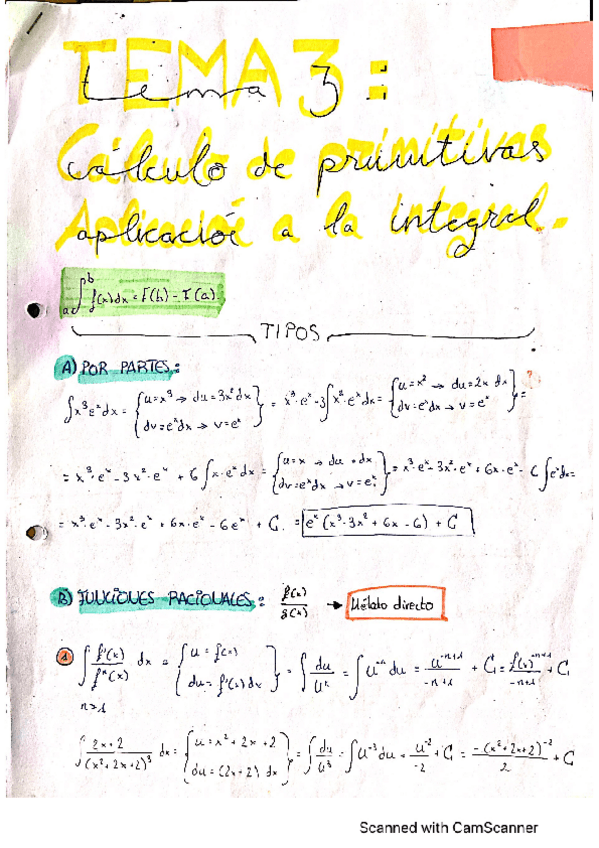 TEMA 3:
tema 3:
Cálculo de primitivas
Aplicació a la integral.
∫ₐᵇ f(x)dx = F(b) - F(a)
TIPOS
A) POR PARTES:
∫x³eˣdx = {u=x³ → du=3x²dx; dv=eˣdx → v=eˣ} = x³·eˣ-3∫x²·eˣdx = {u=x² → du=2x dx; dv=eˣdx → v=eˣ} = ?
= x³·eˣ - 3x²·eˣ + 6∫x·eˣdx = {u=x → du=dx; dv=eˣdx → v=eˣ} = x³·eˣ - 3x²·eˣ + 6x·eˣ - 6∫eˣdx =
= x³·eˣ - 3x²·eˣ + 6x·eˣ - 6eˣ + C = eˣ(x³-3x²+6x-6) + C
B) FUNCIONES RACIONALES: f(x)/g(x) → Método directo
1 ∫ f'(x)/fⁿ(x) dx = {u=f(x); du=f'(x)dx} = ∫ du/uⁿ = ∫u⁻ⁿ du = u⁻ⁿ⁺¹/-n+1 + C = f(x)⁻ⁿ⁺¹/-n+1 + C
n>1
∫ 2x+2/(x²+2x+2)³ dx = {u=x²+2x+2; du=(2x+2) dx} = ∫ du/u³ = ∫u⁻³du = u⁻²/-2 + C = -(x²+2x+2)⁻²/2 + C
Scanned with CamScanner